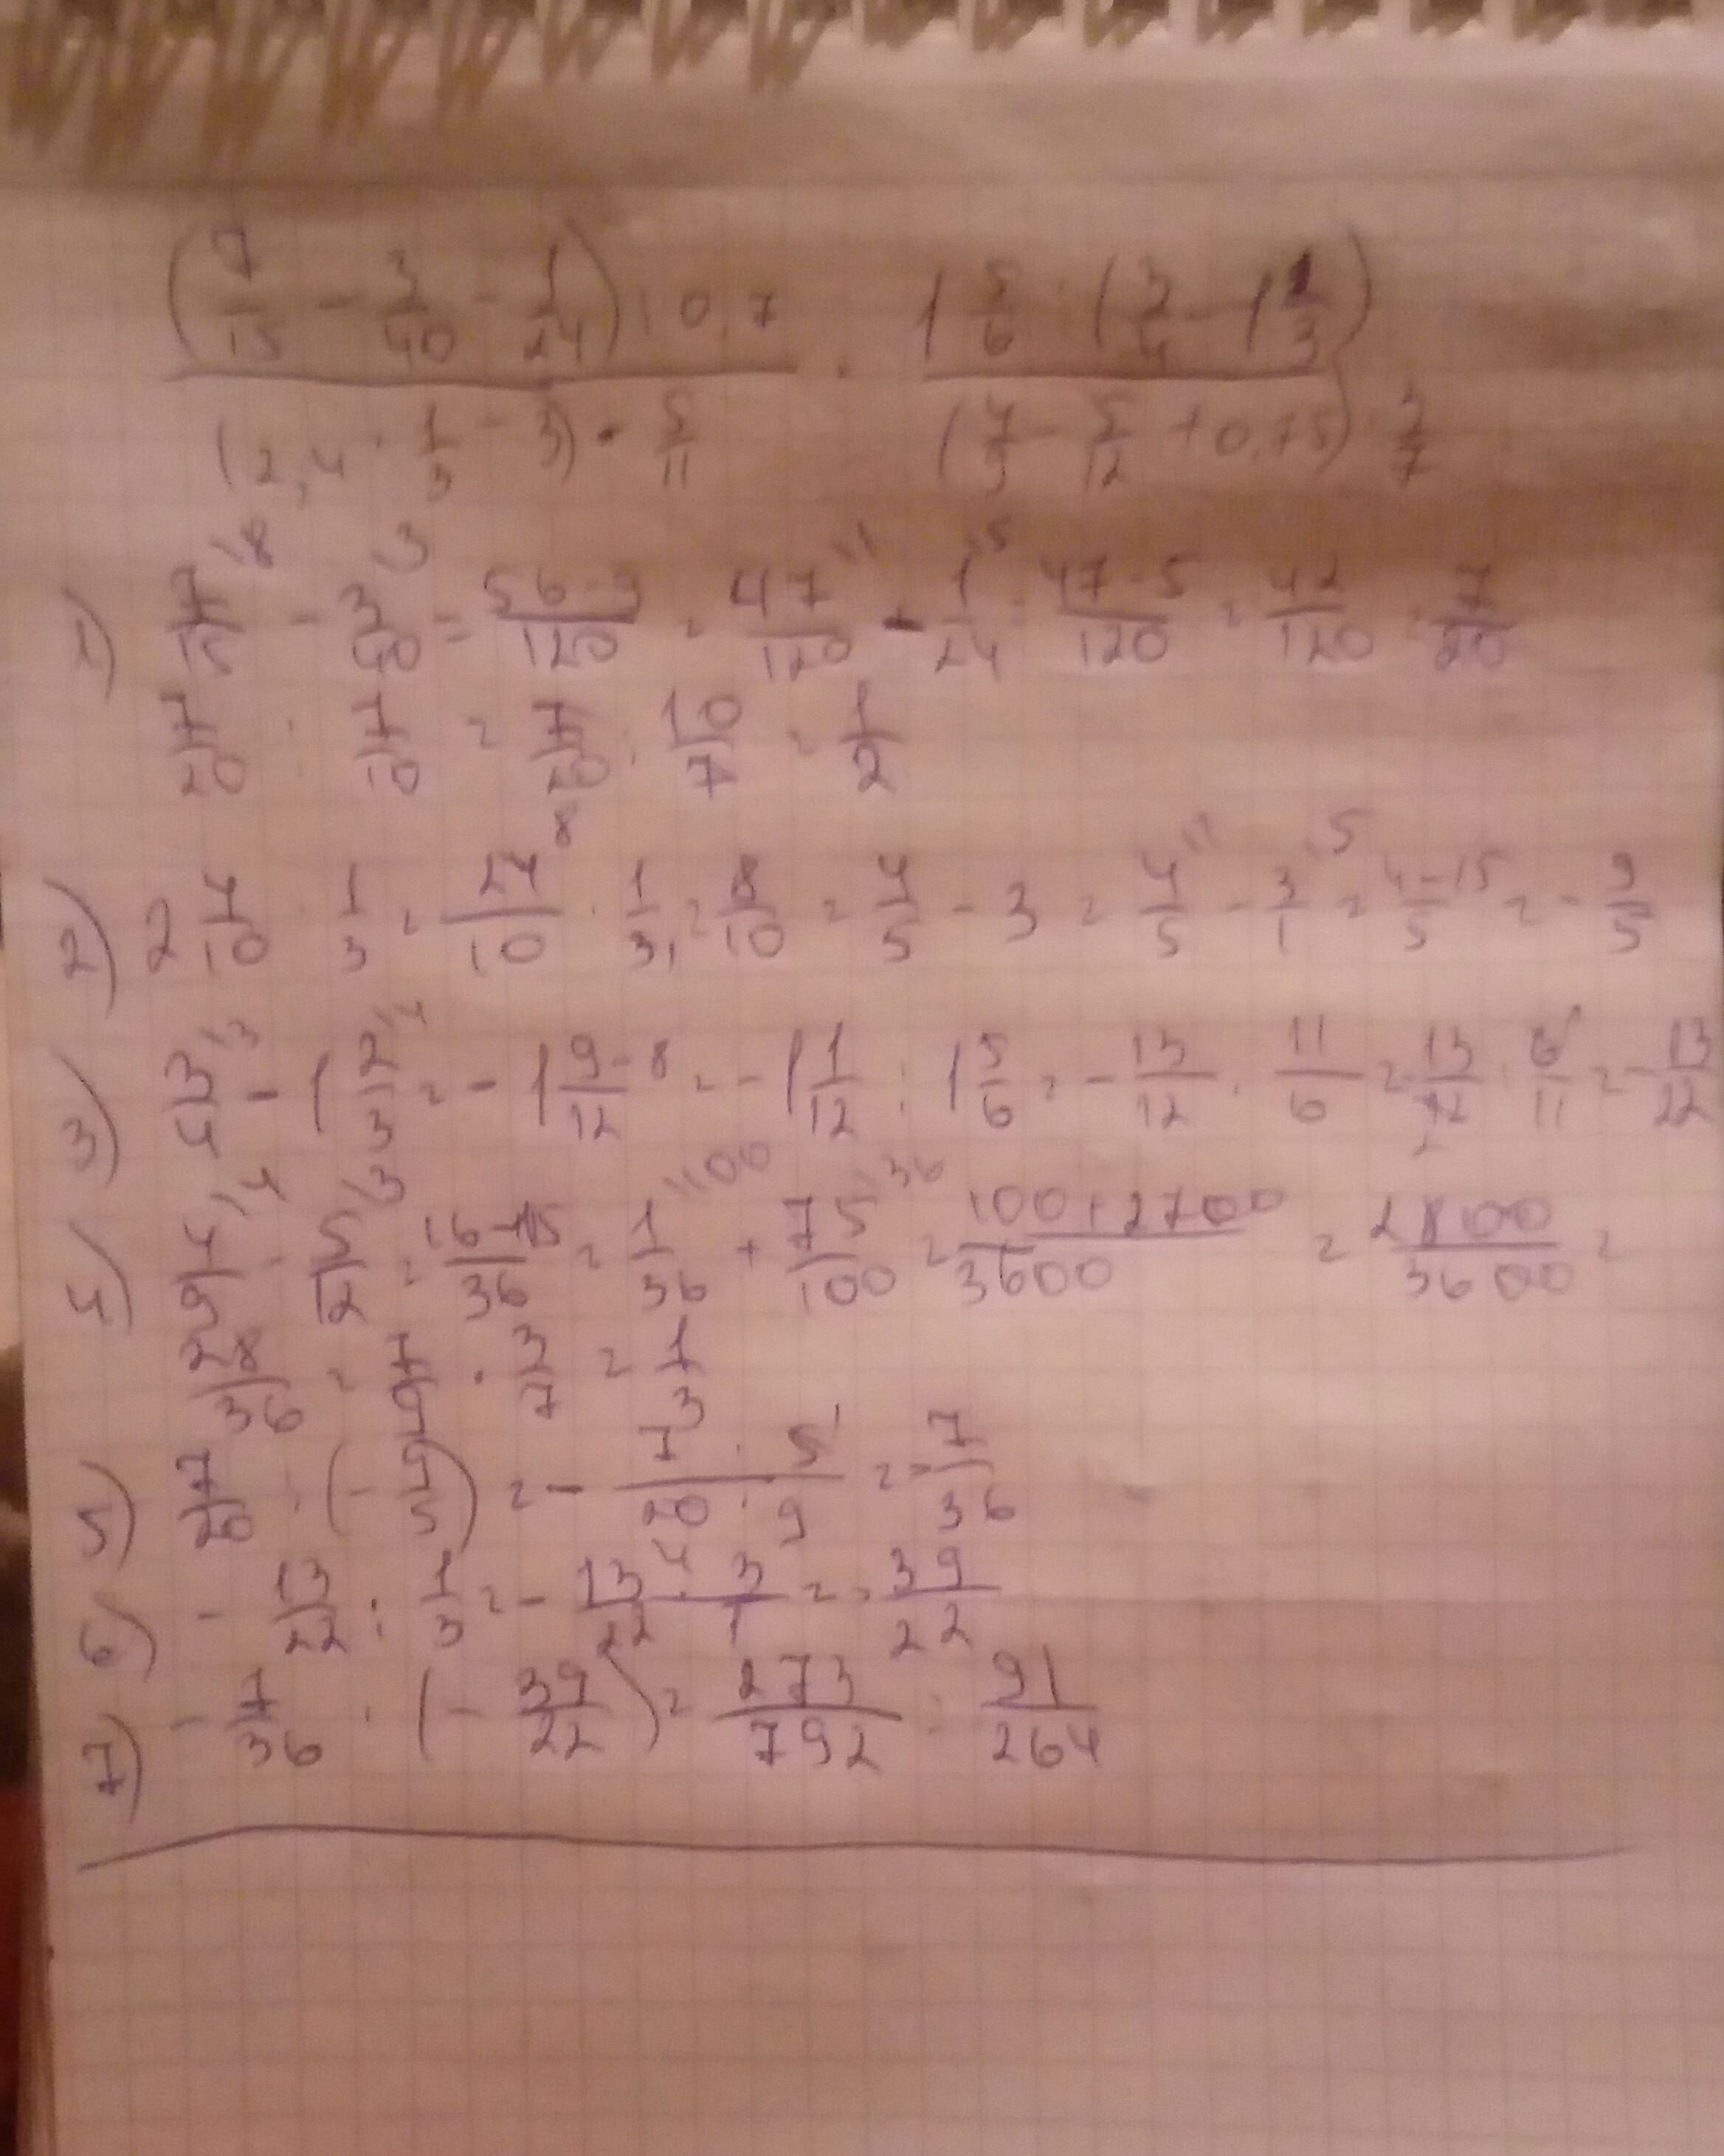 (7/15 - 3/40 - 1/24) : 0,7 / (2,4 · 1/3 - 3) · 5/11 · 1 5/6 : (3/4 - 1 2/3) / (4/9 - 5/12 + 0,75) · 3/7
1) 7/15 \8 - 3/40 \3 = 56-9/120 = 47/120 \1 - 1/24 \5 = 47-5/120 = 42/120 = 7/20
7/20 : 7/10 = 7/20 · 10/7 = 1/2
2) 2 4/10 · 1/3 = 24 8/10 · 1/3 1 = 8/10 = 4/5 - 3 = 4/5 \1 - 3/1 \5 = 4-15/5 = - 9/5
3) 3/4 \3 - 1 2/3 \4 = - 1 9-8/12 = - 1 1/12 : 1 5/6 = - 13/12 · 11/6 = 13/12 2 · 6 1/11 = - 13/22
4) 4/9 \4 - 5/12 \3 = 16-15/36 = 1/36 \100 + 75/100 \36 = 100+2700/3600 = 2800/3600 =
28/36 = 7/9 · 3/7 = 1/3
5) 7/20 : (- 9/5) = - 7 · 5 1/20 · 9 4 = - 7/36
6) - 13/22 : 1/3 = - 13 · 3/22 · 1 = - 39/22
7) - 7/36 · (- 39/22) = 273/792 = 91/264